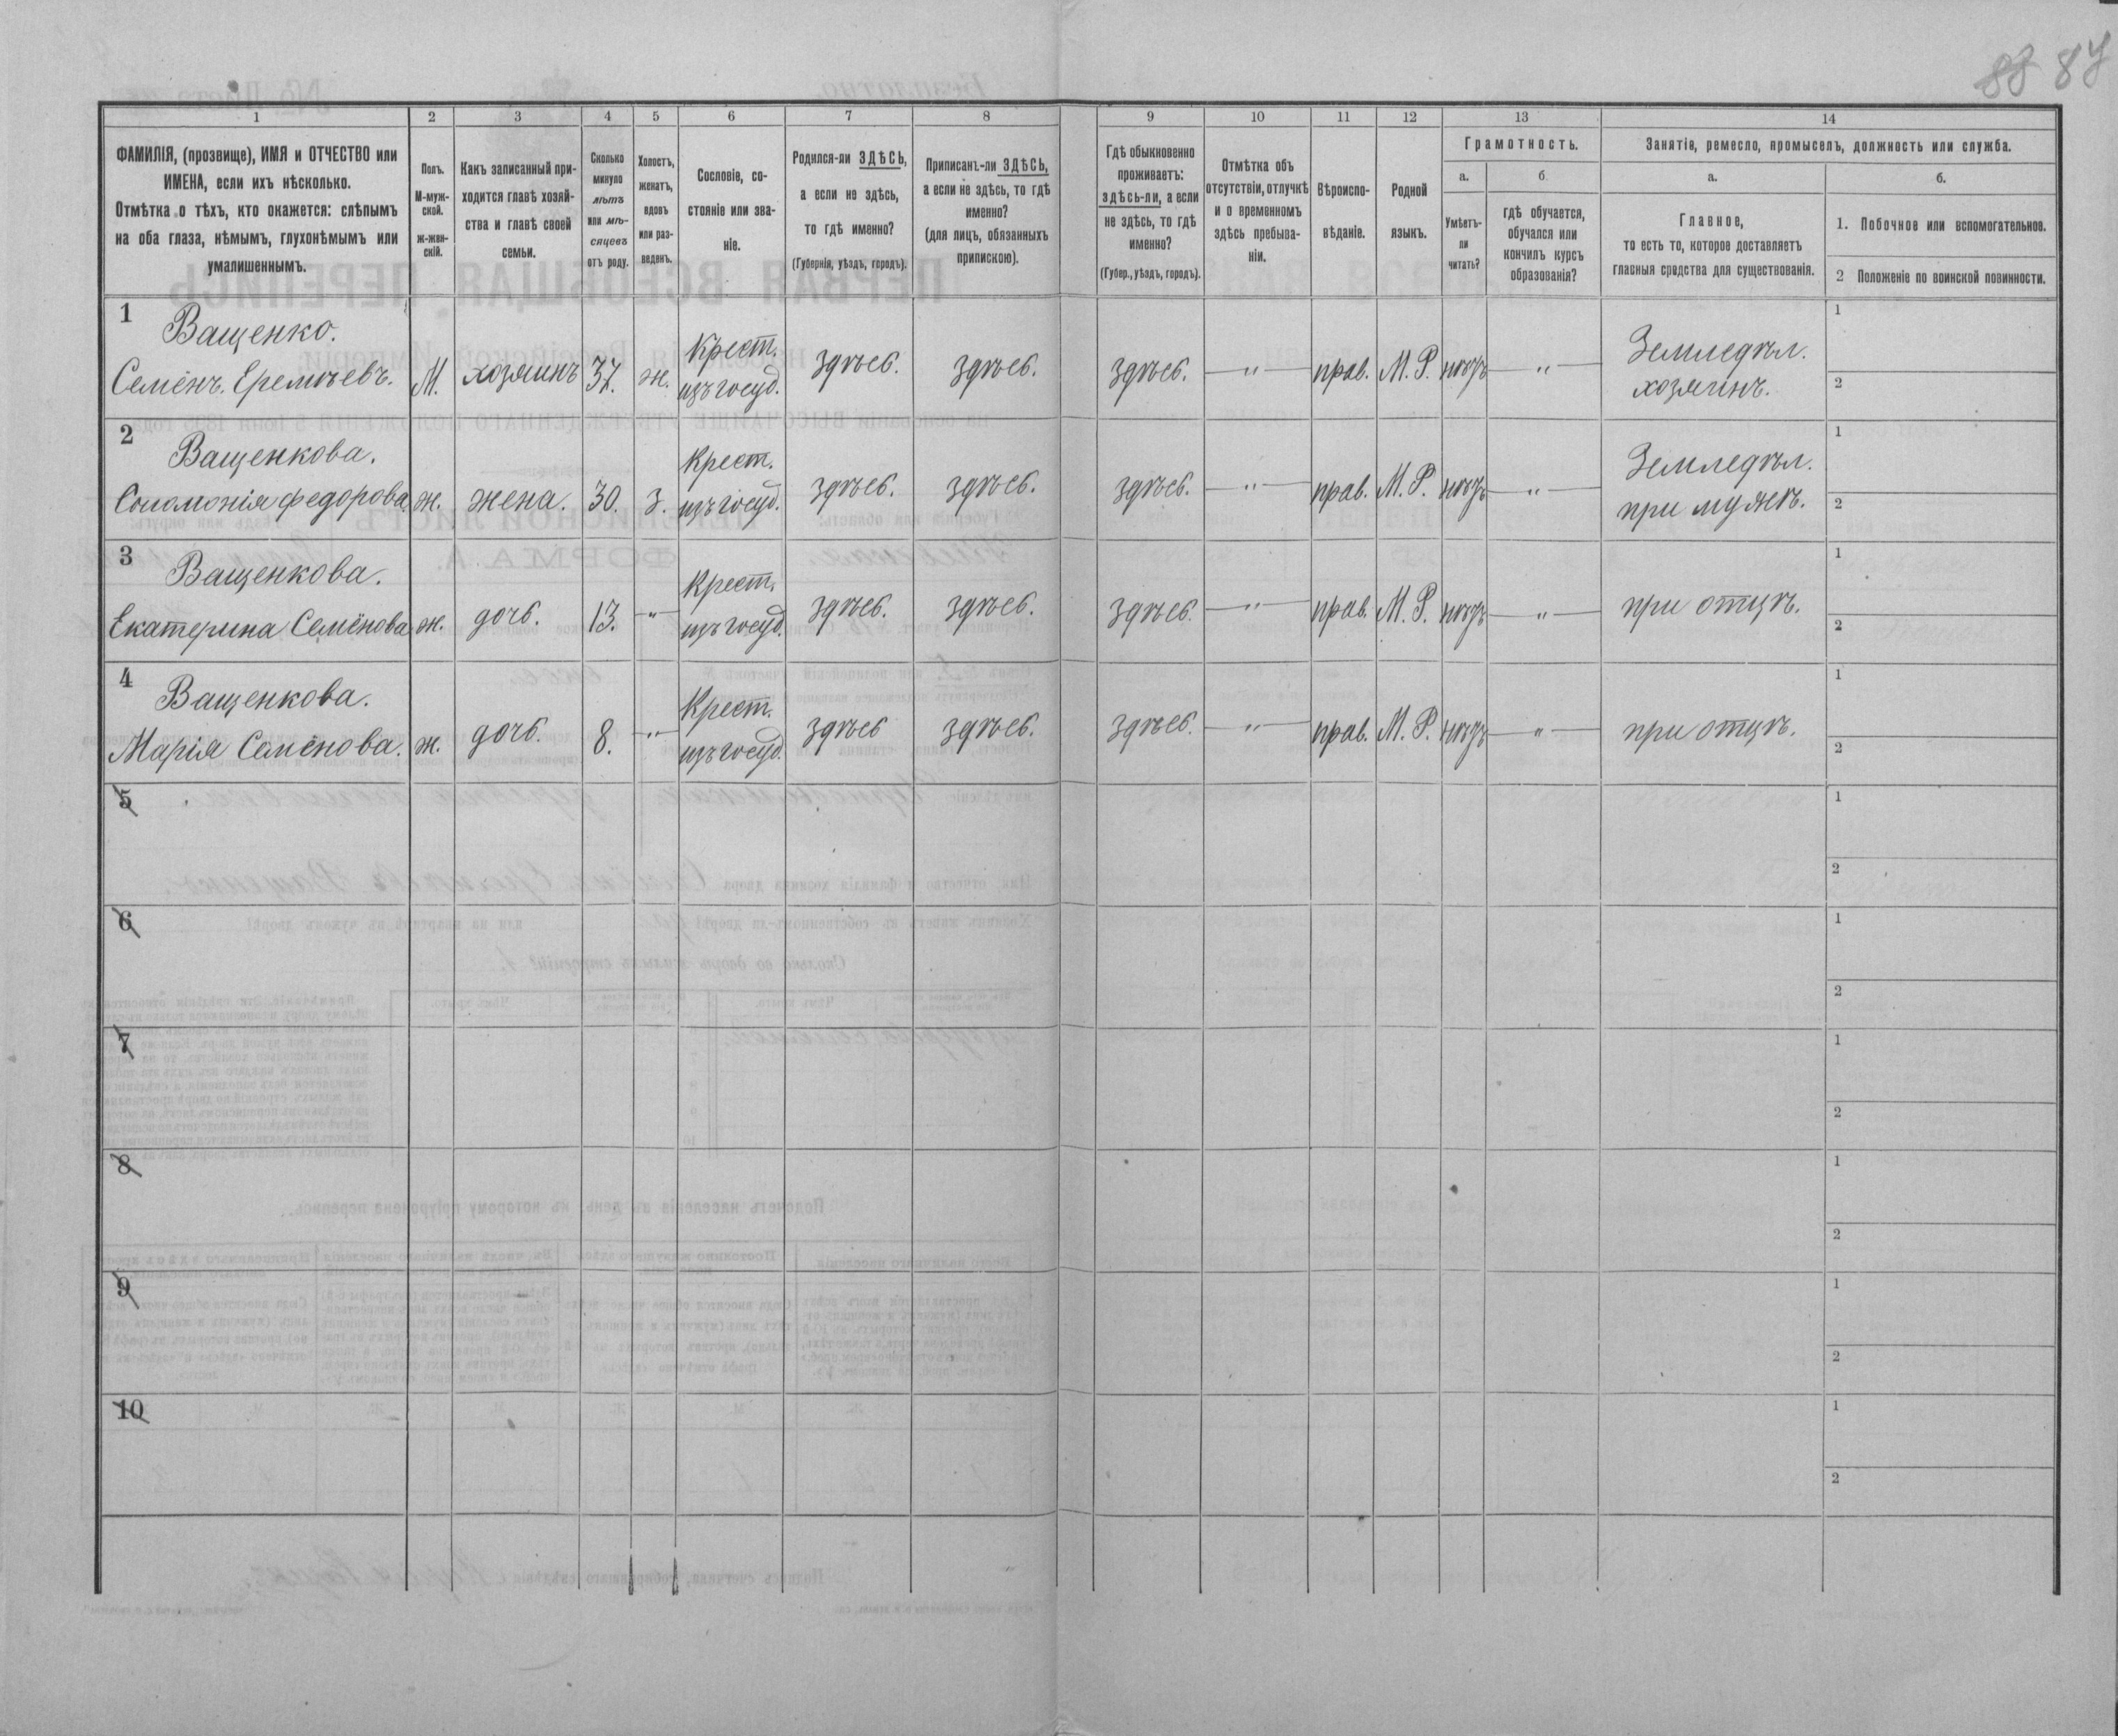 88 87
1 2 3 4 5 6 7 8 9 10 11 12 13 14
ФАМИЛІЯ, (прозвище), ИМЯ и ОТЧЕСТВО или
ИМЕНА, если ихъ нѣсколько.
Отмѣтка о тѣхъ, кто окажется: слѣпымъ
на оба глаза, нѣмымъ, глухонѣмымъ или
умалишеннымъ.
Полъ.
М-муж-
ской.
ж-жен-
скій.
Какъ записанный при-
ходится главѣ хозяй-
ства и главѣ своей
семьи.
Сколько
минуло
лѣтъ
или мѣ-
сяцевъ
отъ роду.
Холостъ,
женатъ,
вдовъ
или раз-
веденъ.
Сословіе, со-
стояніе или зва-
ніе.
Родился-ли ЗДѢСЬ,
а если не здѣсь,
то гдѣ именно?
(Губернія, уѣздъ, городъ).
Приписанъ-ли ЗДѢСЬ,
а если не здѣсь, то гдѣ
именно?
(для лицъ, обязанныхъ
припискою).
Гдѣ обыкновенно
проживаетъ:
здѣсь-ли, а если
не здѣсь, то гдѣ
именно?
(Губер., уѣздъ, городъ).
Отмѣтка объ
отсутствіи, отлучкѣ
и о временномъ
здѣсь пребыва-
ніи.
Вѣроиспо-
вѣданіе.
Родной
языкъ.
Грамотность.
а.
Умѣетъ-
ли
читать?
б.
гдѣ обучается,
обучался или
кончилъ курсъ
образованія?
Занятія, ремесло, промыселъ, должность или служба.
а.
Главное,
то есть то, которое доставляетъ
главныя средства для существованія.
б.
1. Побочное или вспомогательное.
2 Положеніе по воинской повинности.
1 Ващенко. Крест. Земледѣл. 1
Семёнъ. Еремѣевъ. М. хозяинъ 37. ж. изъ госуд. здѣсь. здѣсь. здѣсь. — " — прав. М. Р. нѣтъ — " — хозяинъ. 2
2 Ващенкова. Крест. Земледѣл. 1
Соломонія Федорова. ж. жена. 30. з. изъ госуд. здѣсь. здѣсь. здѣсь. — " — прав. М. Р. нѣтъ — " — при мужѣ. 2
3 Ващенкова. Крест. 1
Екатерина Семёнова ж. дочь. 13. " изъ госуд. здѣсь. здѣсь. здѣсь. — " — прав. М. Р. нѣтъ — " — при отцѣ. 2
4 Ващенкова. Крест. 1
Марія Семёнова. ж. дочь. 8. " изъ госуд. здѣсь здѣсь. здѣсь. — " — прав. М. Р. нѣтъ — " — при отцѣ. 2
5 1
2
6 1
2
7 1
2
8 1
2
9 1
2
10 1
2